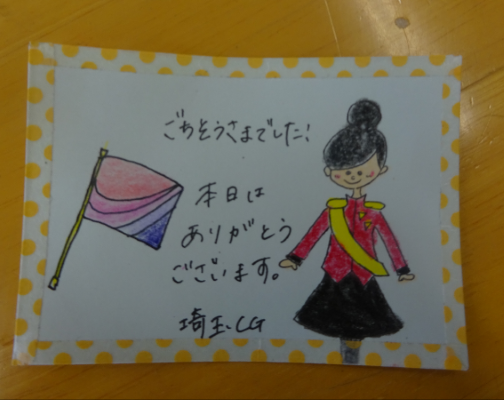 ごちそうさまでした!
本日は
ありがとう
ございます。
埼玉CG